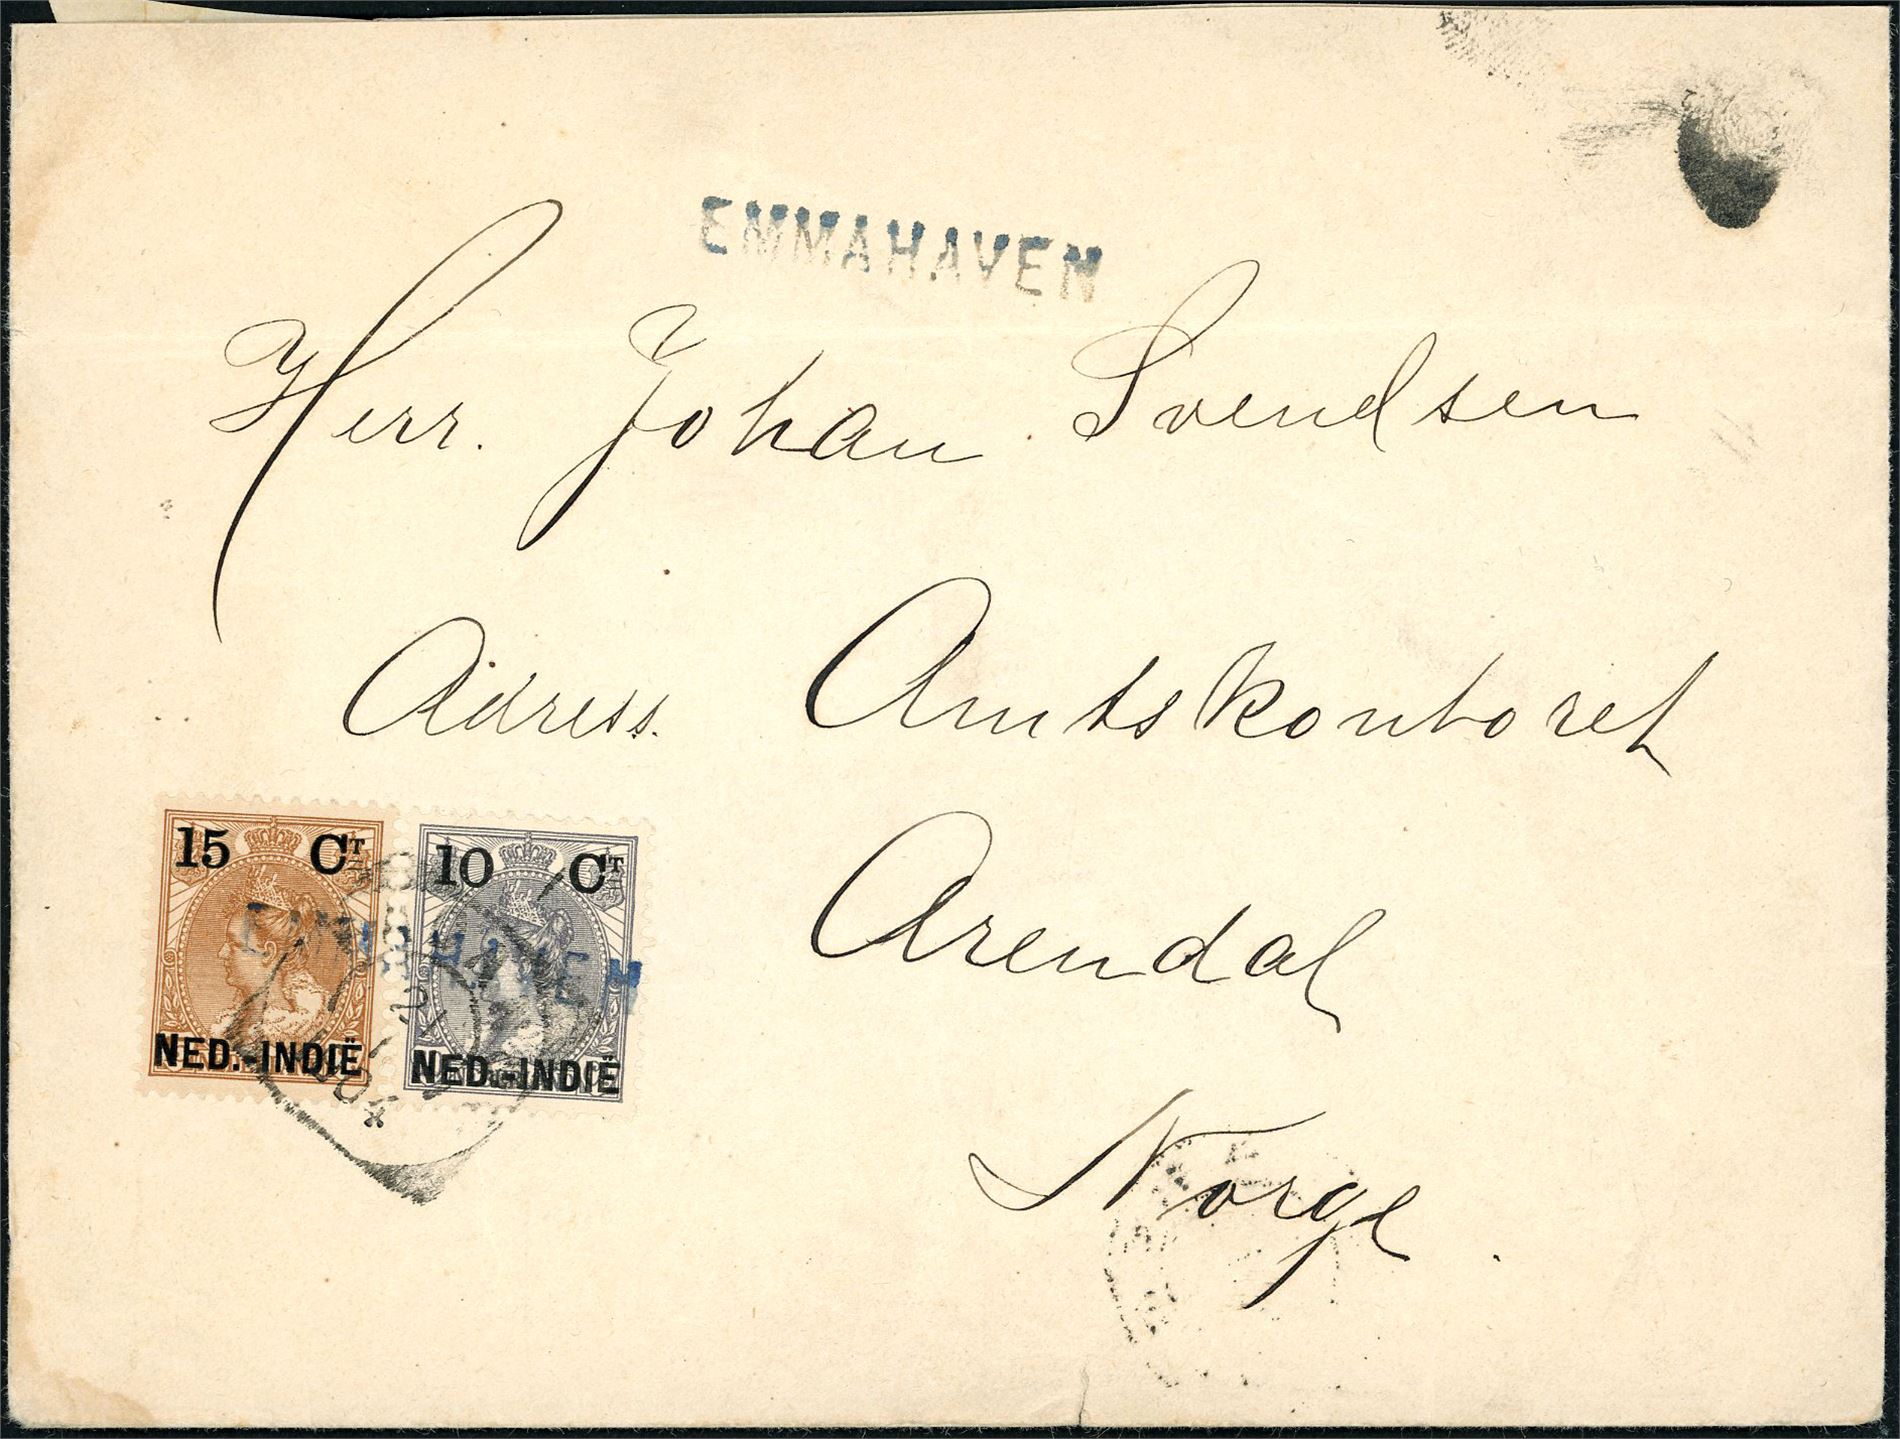 EMMAHAVEN
Herr. Johan Svendsen
Adress. Amtskontoret
15 CT 10 CT
EMMAHAVEN
NED.-INDIË NED.-INDIË
Arendal
Norge.